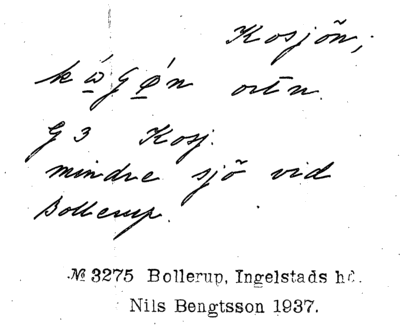 Kosjön;
kώ̲gφ̲́n ortn.
G 3 Kosj.
mindre sjö vid
Bollerup.
№ 3275 Bollerup, Ingelstads hd.
Nils Bengtsson 1937.